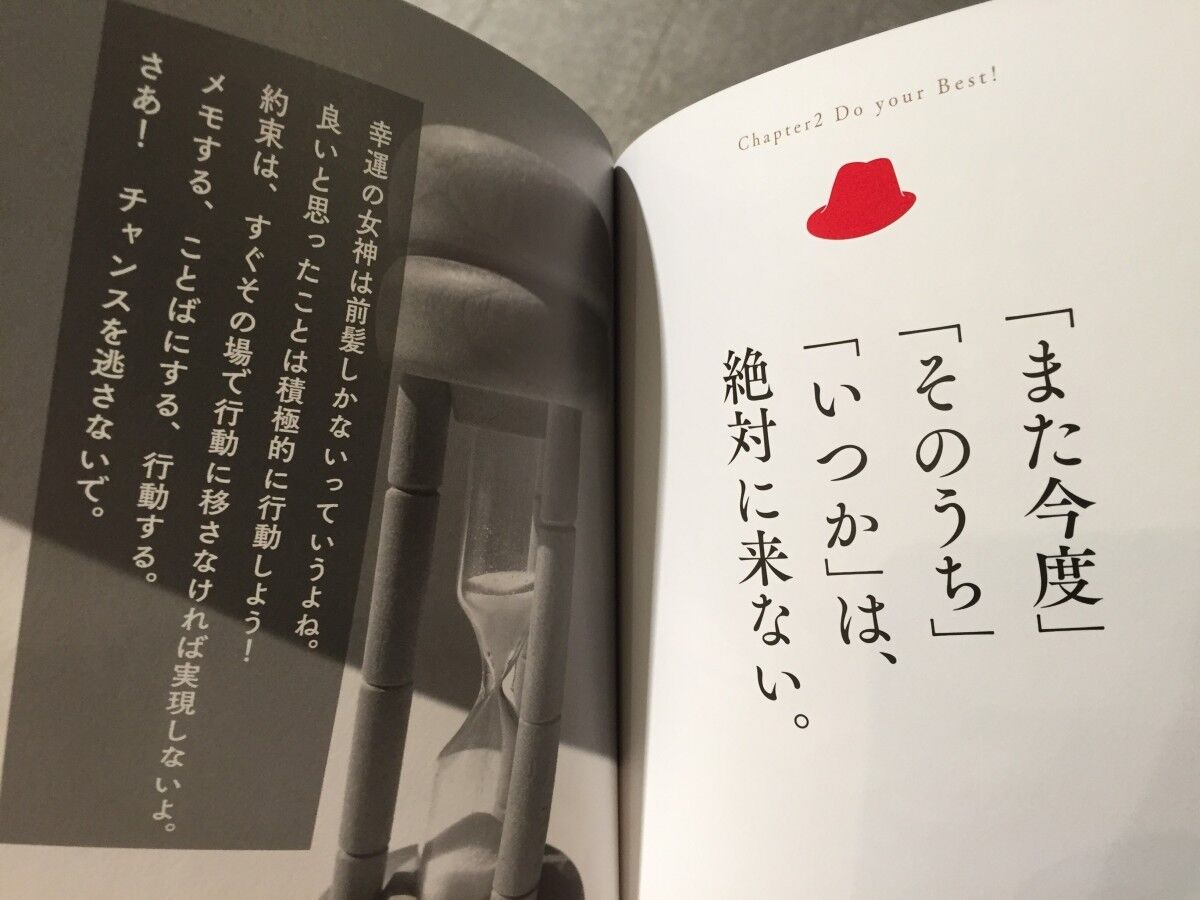 Chapter2 Do your Best!
「また今度」
「そのうち」
「いつか」は、
絶対に来ない。
幸運の女神は前髪しかないっていうよね。
良いと思ったことは積極的に行動しよう!
約束は、すぐその場で行動に移さなければ実現しないよ。
メモする、ことばにする、行動する。
さあ! チャンスを逃さないで。